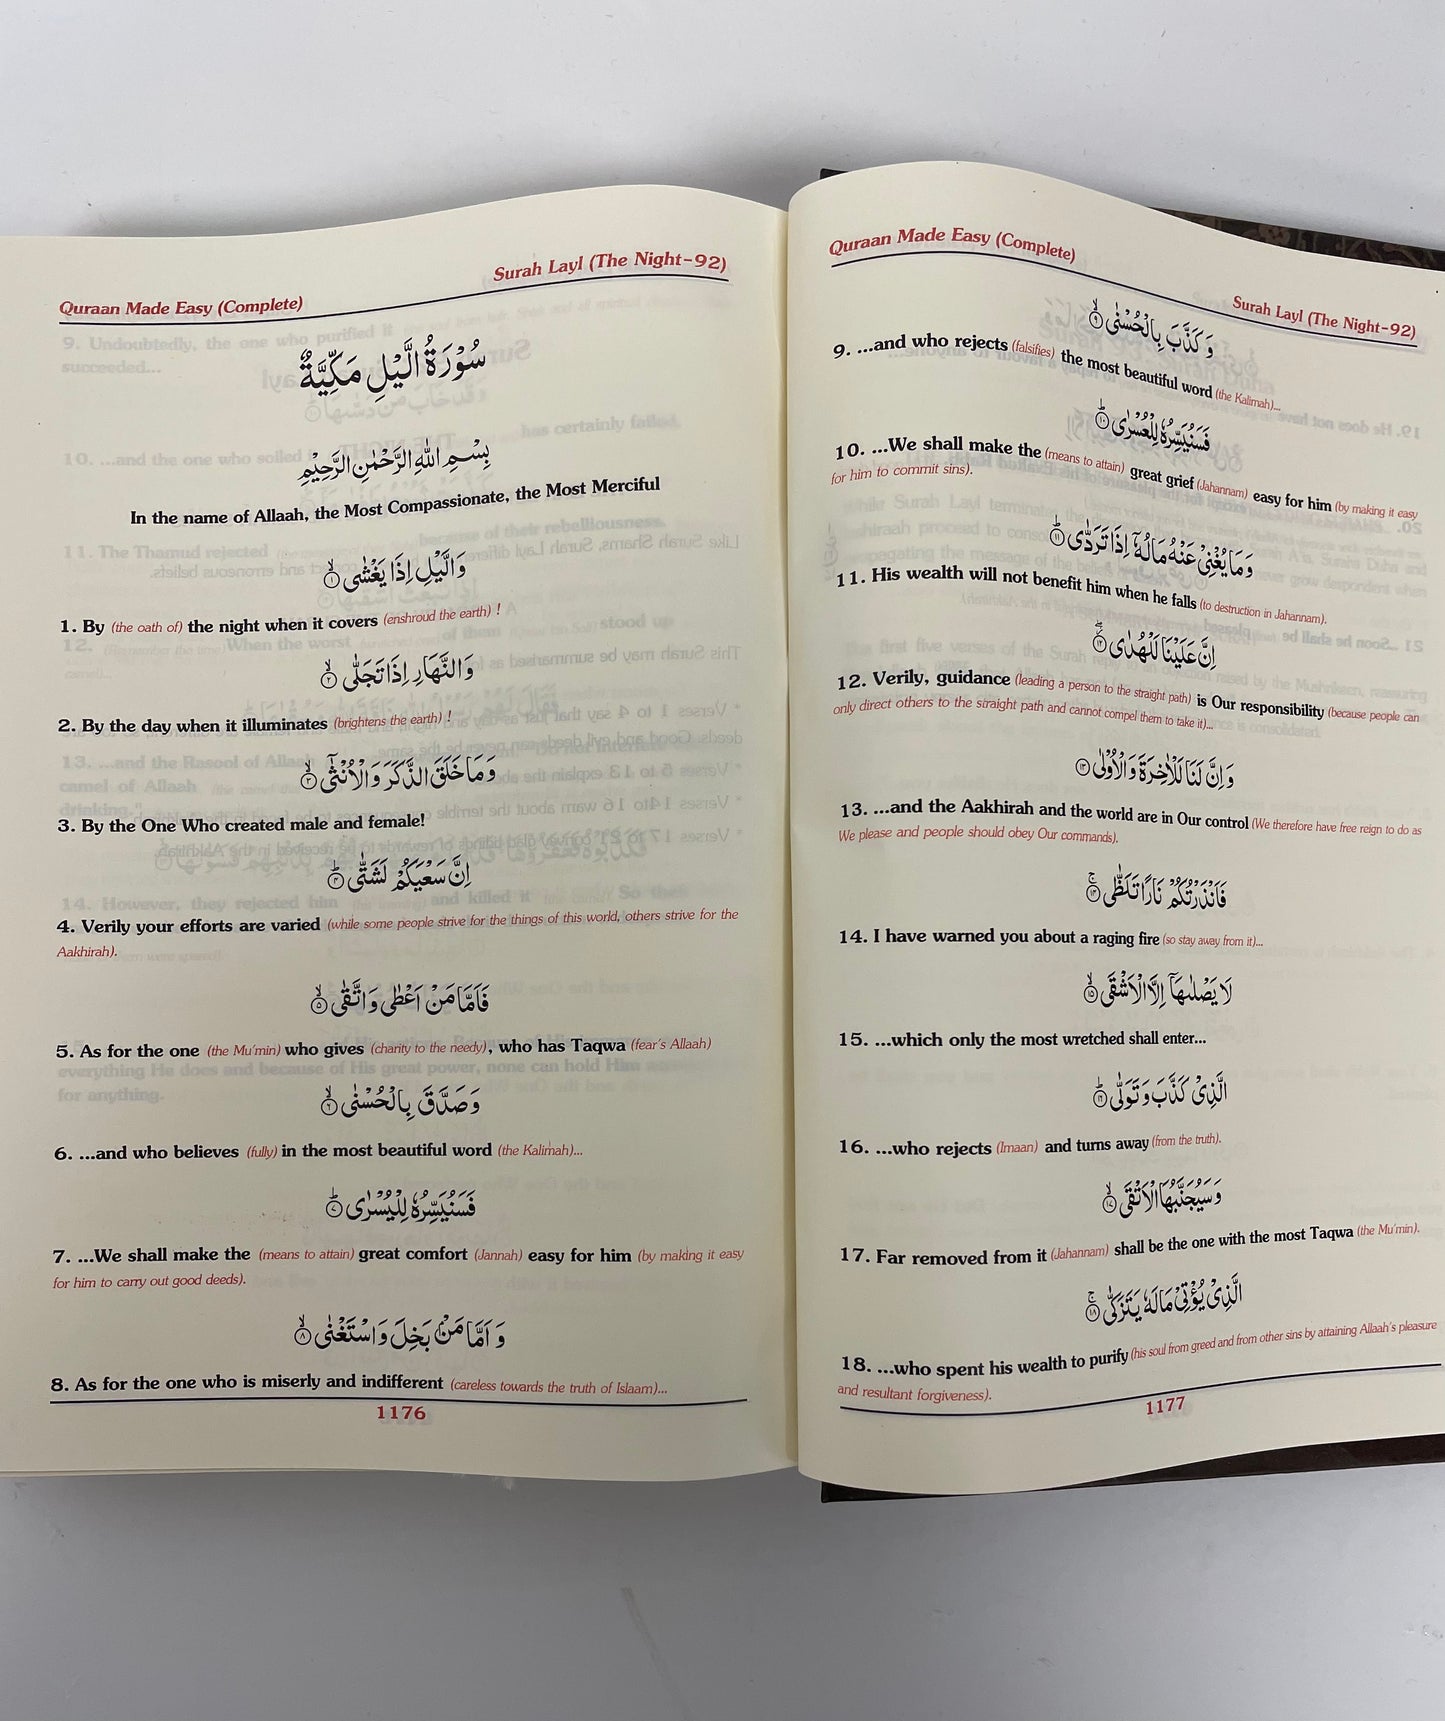 Quraan Made Easy (Complete)
Surah Layl (The Night-92)
سُوْرَةُ الَّيْلِ مَكِّيَّةٌ
بِسْمِ اللّٰهِ الرَّحْمٰنِ الرَّحِيْمِ
In the name of Allaah, the Most Compassionate, the Most Merciful
وَالَّيْلِ اِذَا يَغْشٰىۙ۝۱
1. By (the oath of) the night when it covers (enshroud the earth) !
وَالنَّهَارِ اِذَا تَجَلّٰىۙ۝۲
2. By the day when it illuminates (brightens the earth) !
وَمَا خَلَقَ الذَّكَرَ وَالْاُنْثٰۤىۙ۝۳
3. By the One Who created male and female!
اِنَّ سَعْيَكُمْ لَشَتّٰىؕ۝۴
4. Verily your efforts are varied (while some people strive for the things of this world, others strive for the
Aakhirah).
فَاَمَّا مَنْ اَعْطٰى وَاتَّقٰىۙ۝۵
5. As for the one (the Mu'min) who gives (charity to the needy), who has Taqwa (fear's Allaah)
وَصَدَّقَ بِالْحُسْنٰىۙ۝۶
6. ...and who believes (fully) in the most beautiful word (the Kalimah)...
فَسَنُيَسِّرُهٗ لِلْيُسْرٰىؕ۝۷
7. ...We shall make the (means to attain) great comfort (Jannah) easy for him (by making it easy
for him to carry out good deeds).
وَاَمَّا مَنْۢ بَخِلَ وَاسْتَغْنٰىۙ۝۸
8. As for the one who is miserly and indifferent (careless towards the truth of Islaam)...
1176
Quraan Made Easy (Complete)
Surah Layl (The Night-92)
وَكَذَّبَ بِالْحُسْنٰىۙ۝۹
9. ...and who rejects (falsifies) the most beautiful word (the Kalimah)...
فَسَنُيَسِّرُهٗ لِلْعُسْرٰىؕ۝۱۰
10. ...We shall make the (means to attain) great grief (Jahannam) easy for him (by making it easy
for him to commit sins).
وَمَا يُغْنِيْ عَنْهُ مَالُهٗۤ اِذَا تَرَدّٰىؕ۝۱۱
11. His wealth will not benefit him when he falls (to destruction in Jahannam).
اِنَّ عَلَيْنَا لَلْهُدٰى۝۱۲
12. Verily, guidance (leading a person to the straight path) is Our responsibility (because people can
only direct others to the straight path and cannot compel them to take it)...
وَاِنَّ لَنَا لَلْاٰخِرَةَ وَالْاُوْلٰى۝۱۳
13. ...and the Aakhirah and the world are in Our control (We therefore have free reign to do as
We please and people should obey Our commands).
فَاَنْذَرْتُكُمْ نَارًا تَلَظّٰىۚ۝۱۴
14. I have warned you about a raging fire (so stay away from it)...
لَا يَصْلٰىهَاۤ اِلَّا الْاَشْقَىۙ۝۱۵
15. ...which only the most wretched shall enter...
الَّذِيْ كَذَّبَ وَتَوَلّٰىؕ۝۱۶
16. ...who rejects (Imaan) and turns away (from the truth).
وَسَيُجَنَّبُهَا الْاَتْقَىۙ۝۱۷
17. Far removed from it (Jahannam) shall be the one with the most Taqwa (the Mu'min).
الَّذِيْ يُؤْتِيْ مَالَهٗ يَتَزَكّٰىۚ۝۱۸
18. ...who spent his wealth to purify (his soul from greed and from other sins by attaining Allaah's pleasure
and resultant forgiveness).
1177